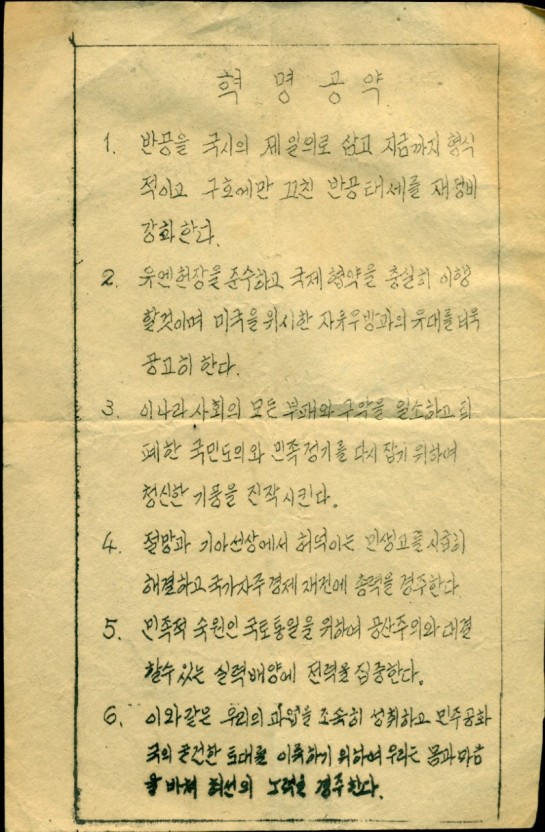 혁명공약
1. 반공을 국시의 제일의로 삼고 지금까지 형식
적이고 구호에만 끄친 반공태세를 재정비
강화한다.
2. 유엔헌장을 준수하고 국제협약을 충실히 이행
할것이며 미국을 위시한 자유우방과의 유대를 더욱
공고히 한다.
3. 이나라 사회의 모든 부패와 구악을 일소하고 퇴
폐한 국민도의와 민족정기를 다시 잡기 위하여
청신한 기풍을 진작시킨다.
4. 절망과 기아선상에서 허덕이는 민생고를 시급히
해결하고 국가자주경제 재건에 총력을 경주한다
5. 민족적 숙원인 국토통일을 위하여 공산주의와 대결
할수 있는 실력배양에 전력을 집중한다.
6. 이와같은 우리의 과업을 조속히 성취하고 민주공화
국의 굳건한 토대를 이룩하기 위하여 우리는 몸과 마음
을 바쳐 최선의 노력을 경주한다.